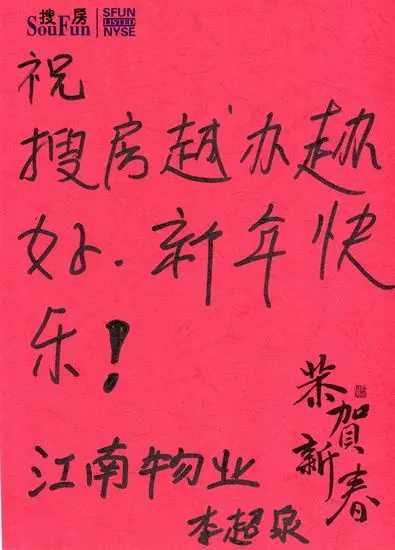 搜房
SouFun
SFUN
LISTED
NYSE
祝
搜房越办越
好.新年快
乐!
恭賀
新春
江南物业
李超泉